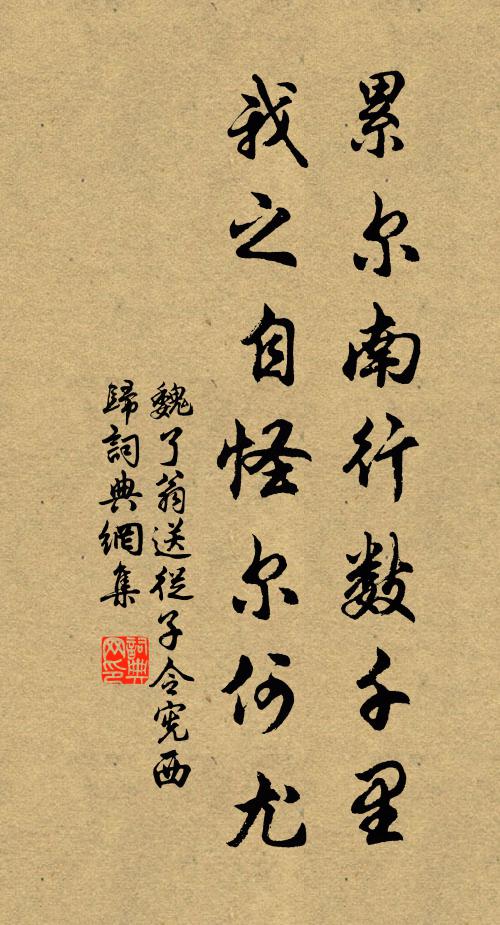 累尔南行数千里
我之自怪尔何尤
魏了翁送従子令宪西
歸詞典網集
詞典
网印